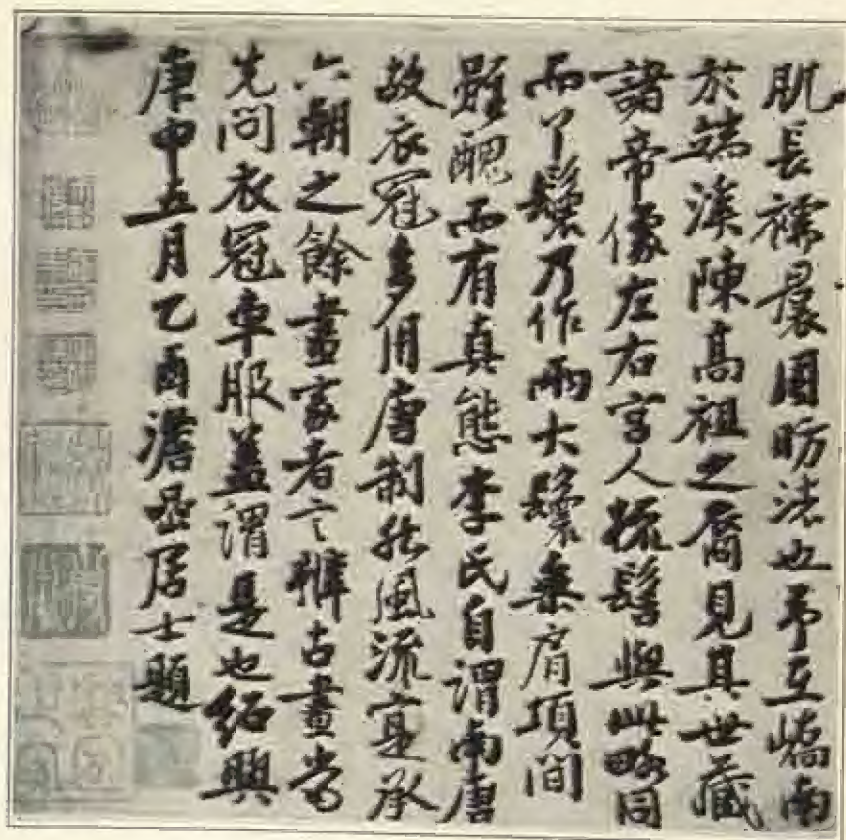 肌長襦裠周昉法也予至嶠南
於端溪陳高祖之裔見其世藏
諸帝像左右宮人梳髻與此略同
而丫鬟乃作兩大鬟垂肩項間
雖醜而有真態李氏自謂南唐
故衣冠多用唐制然風流寔承
六朝之餘畫家者言辨古畫當
先問衣冠車服蓋謂是也紹興
庚申五月乙酉澹喦居士題